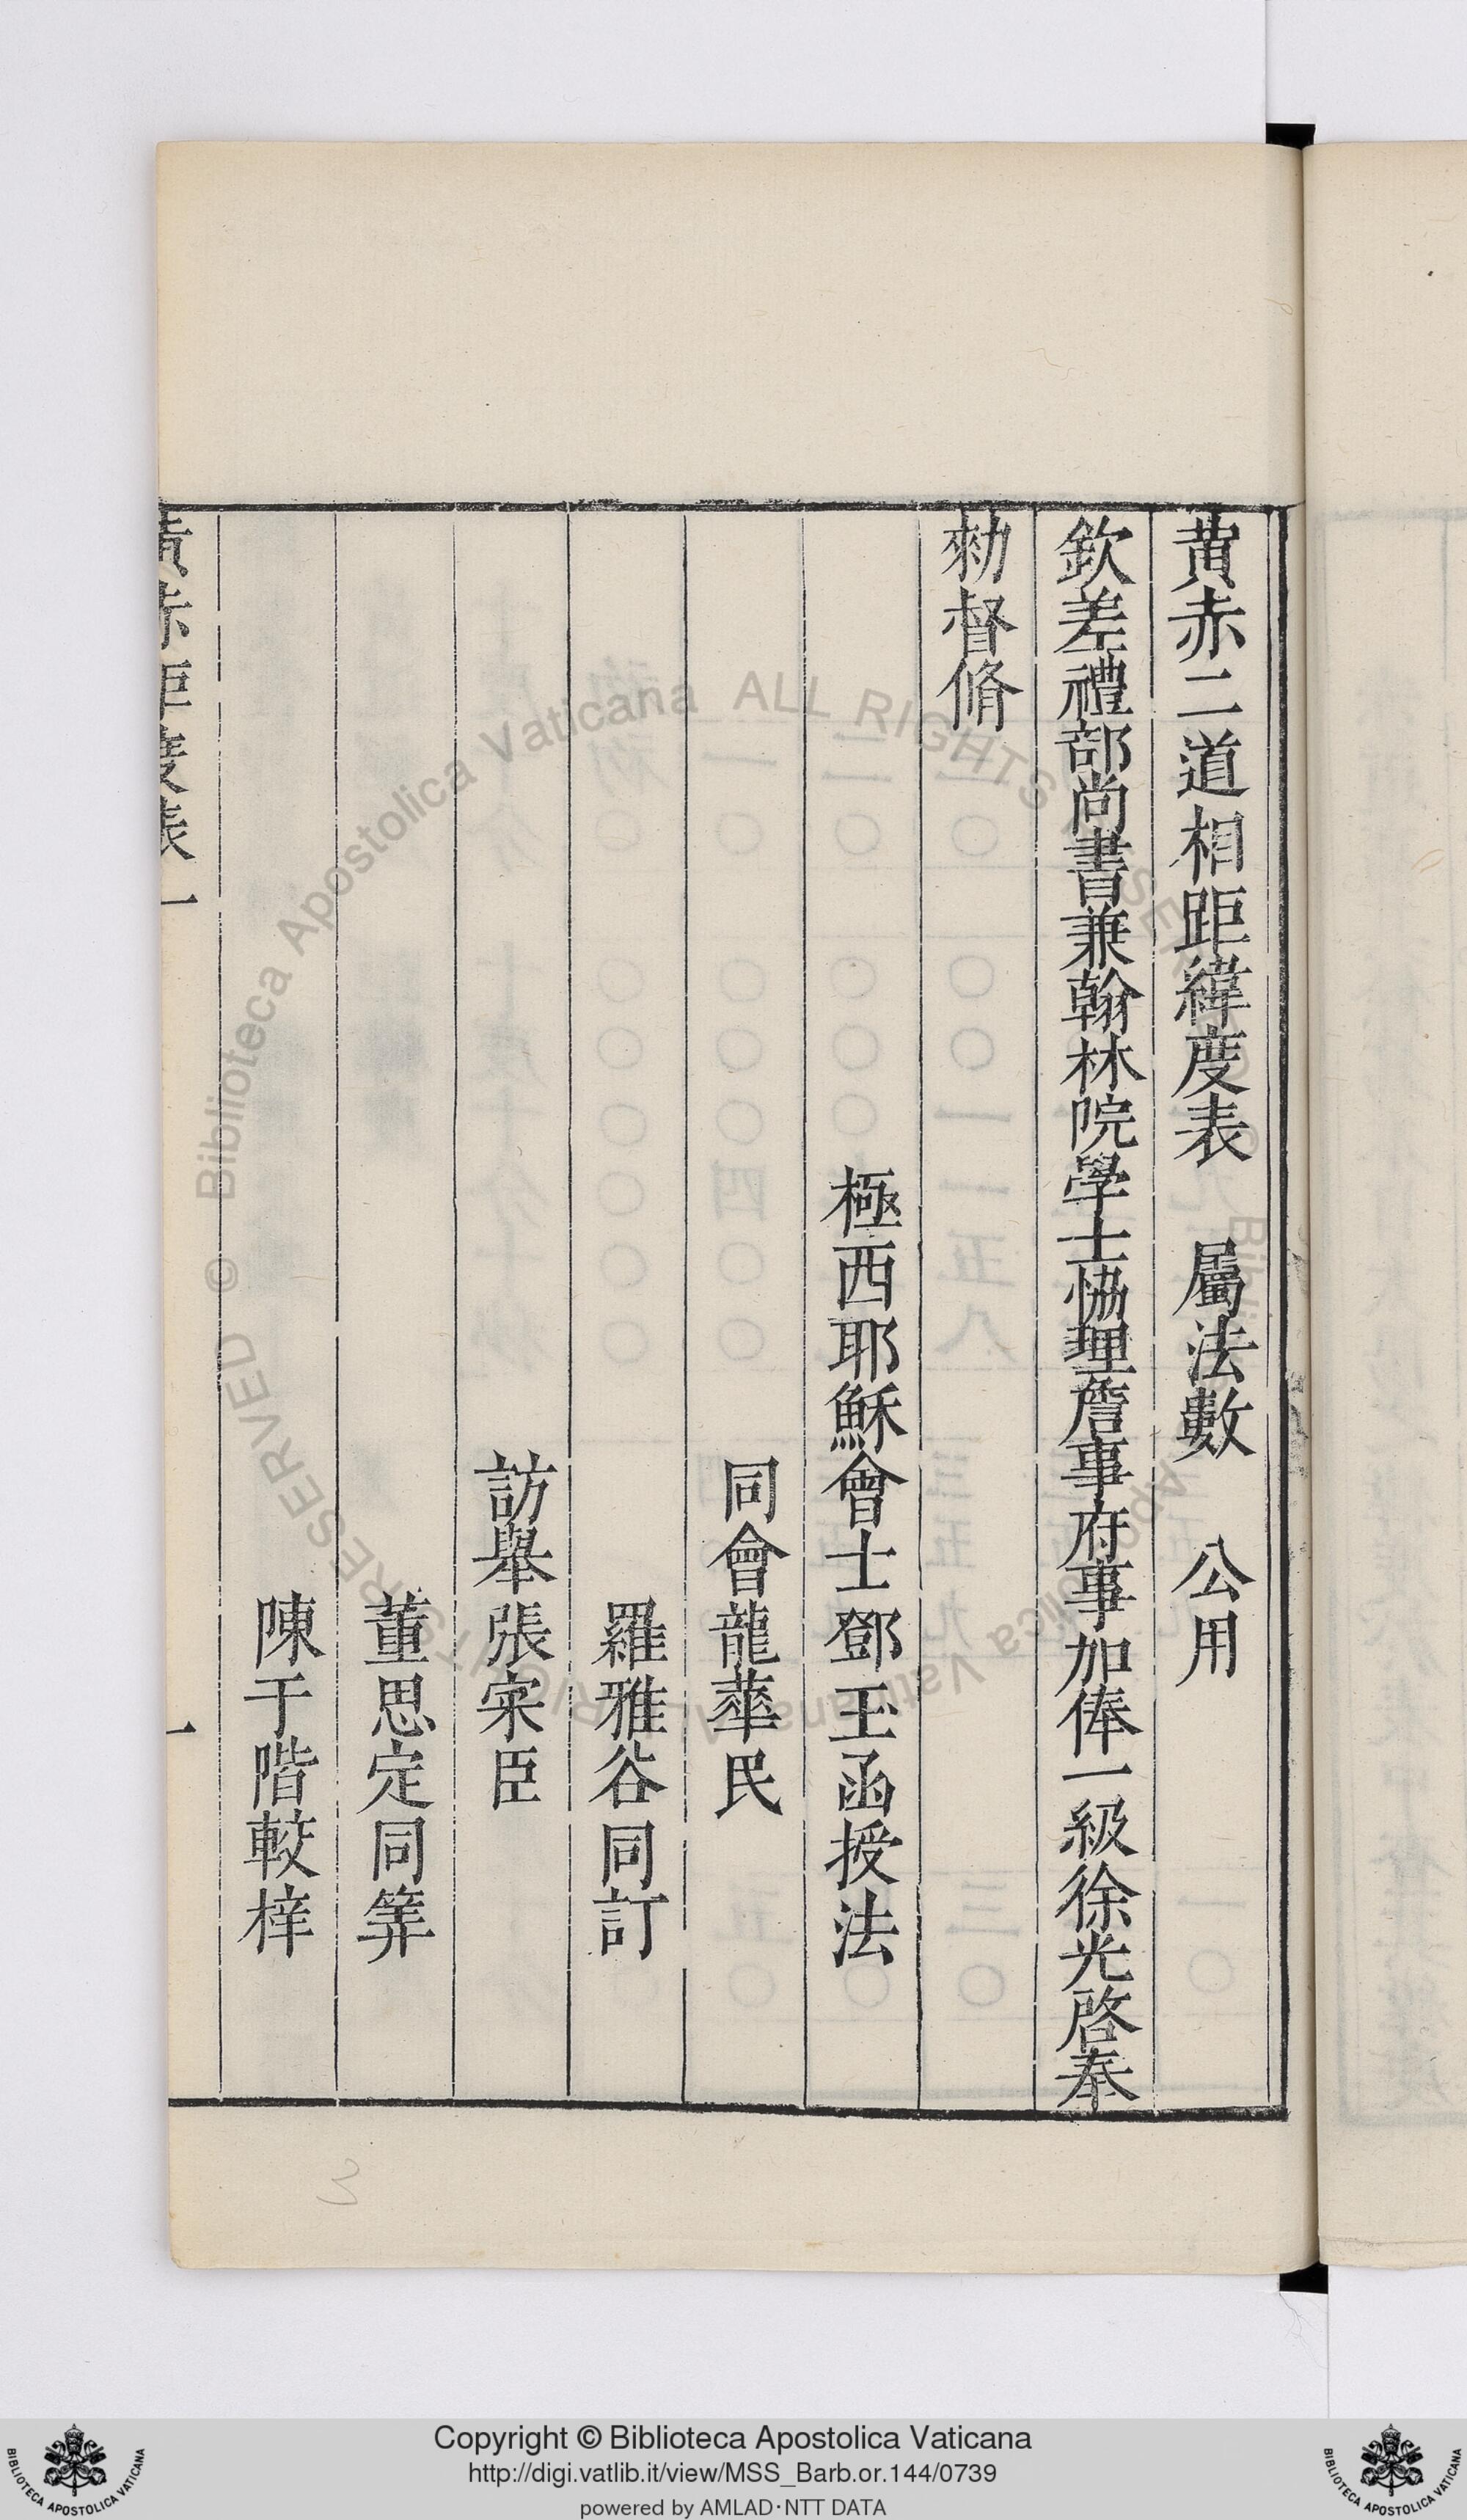 黄赤二道相距緯度表　屬法數　公用
欽差禮部尚書兼翰林院學士協理詹事府事加俸一級徐光啓奉
勑督脩
極西耶穌會士鄧玉函授法
同會龍華民
羅雅谷同訂
訪舉張寀臣
董思定同筭
陳于階較梓
黃赤距度表一
一
3
Biblioteca Apostolica Vaticana ALL RIGHTS RESERVED ©
Copyright © Biblioteca Apostolica Vaticana
http://digi.vatlib.it/view/MSS_Barb.or.144/0739
powered by AMLAD·NTT DATA
BIBLIOTECA APOSTOLICA VATICANA
BIBLIOTECA APOSTOLICA VATICANA